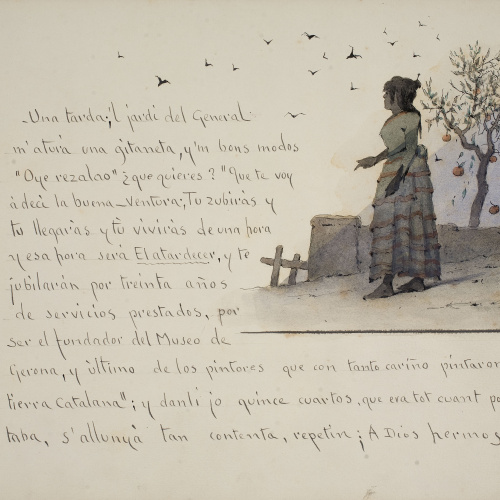 -Una tarda;'l jardi del General
m'aturà una gitaneta, y'm bons modos
"Oye rezalao" ¿que quieres.? "Que te voy
à deci la buena-ventura; Tu zubiràs y
tu llegaràs y tù viviràs de una hora
y esa hora serà El atardecer, y te
jubilaràn por treinta años
de servicios prestados, por
ser el fundador del Museo de
Gerona, y ùltimo de los pintores que con tanto cariño pintaron
tierra Catalana"; y danli jo quince cuartos, que era tot cuant po
taba, s'allunyà tan contenta, repetin; A Dios hermos